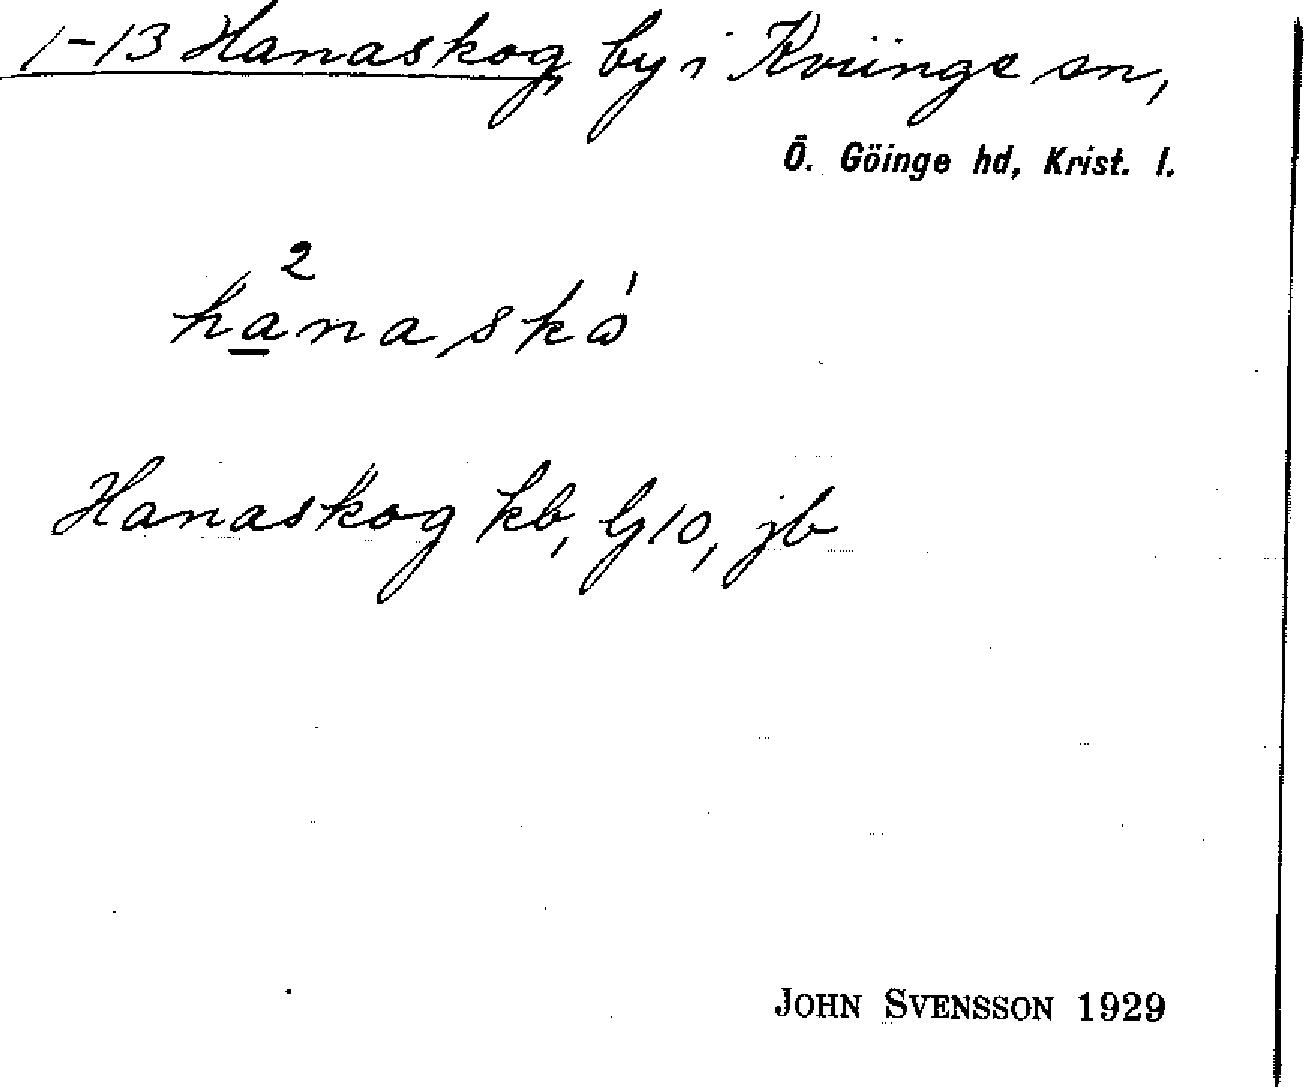 1-13 Hanaskog, by i Kviinge sn,
Ö. Göinge hd, Krist. l.
2
hanaskó
Hanaskog kb, G10, jb
JOHN SVENSSON 1929